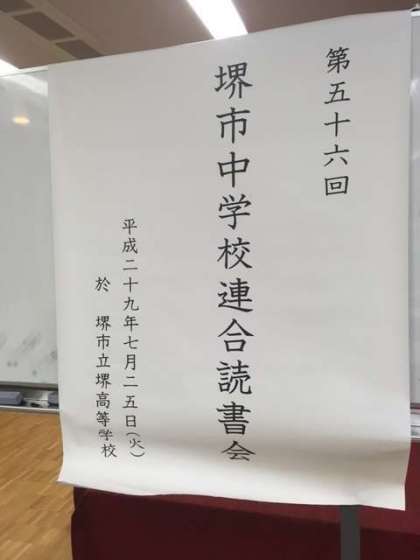 第五十六回
堺市中学校連合読書会
平成二十九年七月二五日(火)
於 堺市立堺高等学校